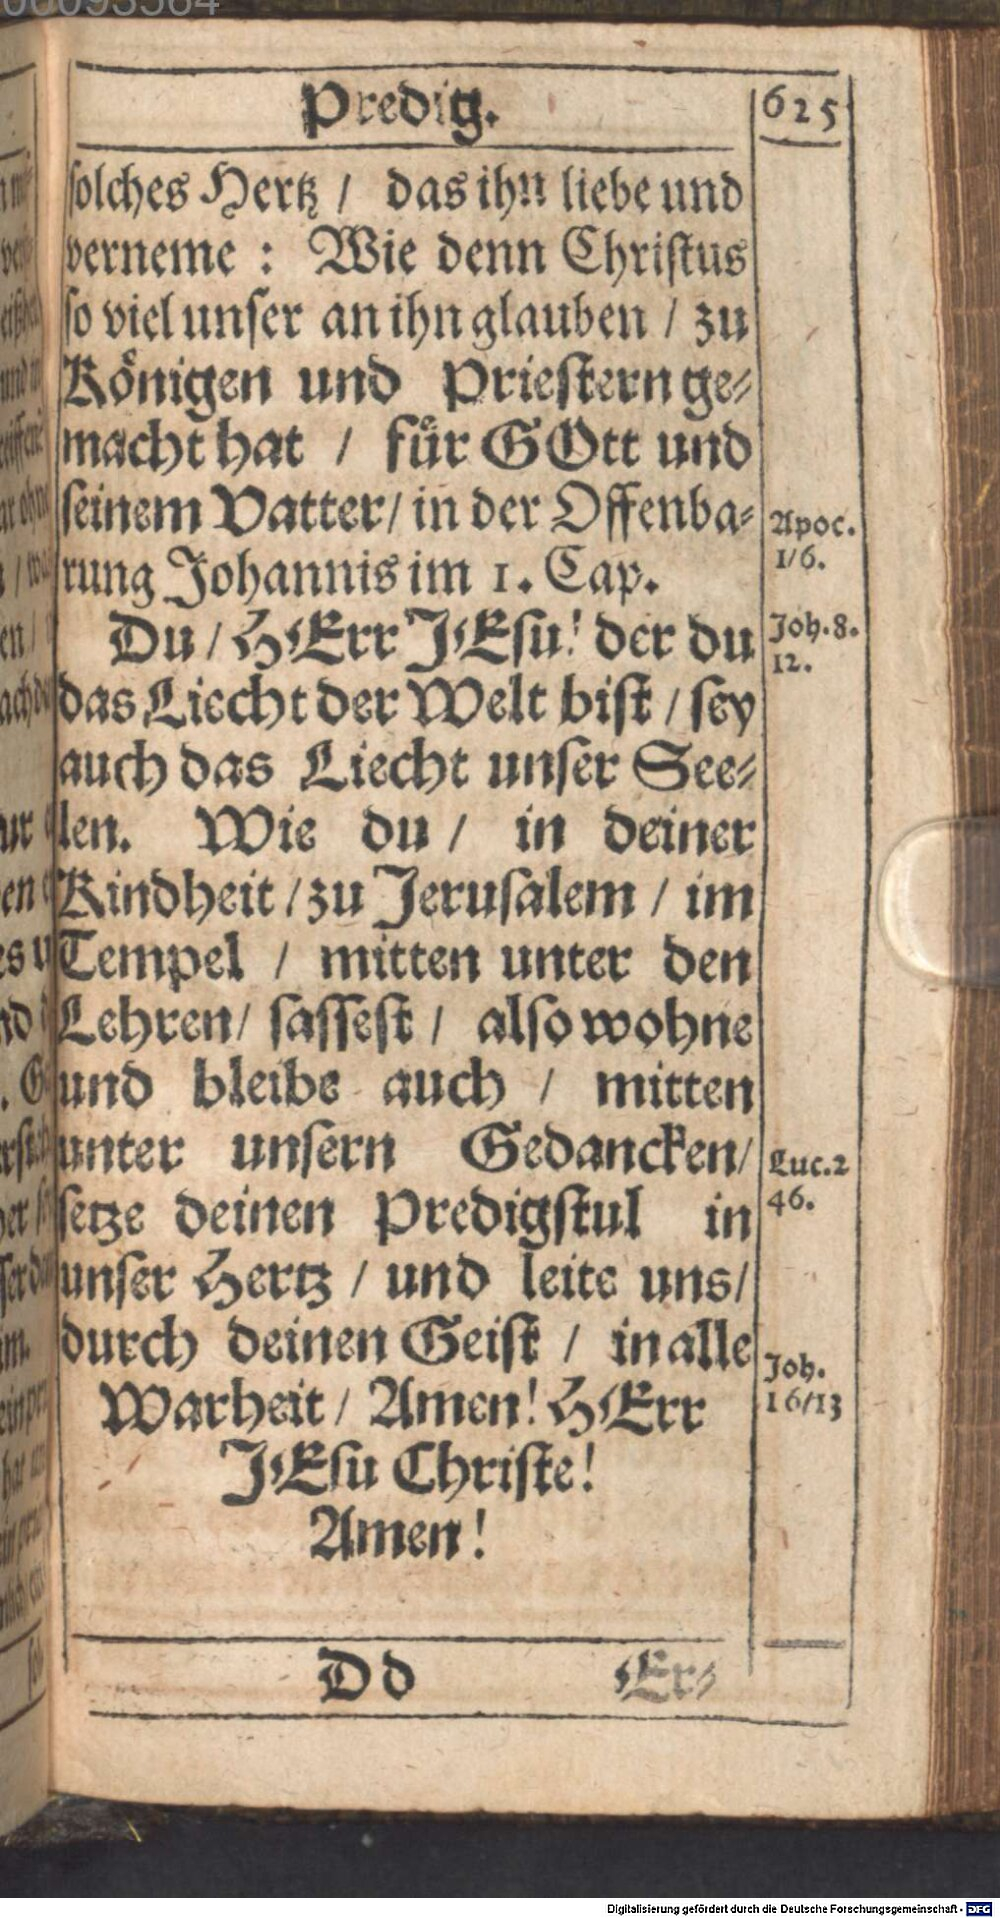 Predig.
625
solches Hertz / das ihn liebe und
verneme : Wie denn Christus
so viel unser an ihn glauben / zu
Königen und Priestern ge⸗
macht hat / für GOtt und
seinem Vatter/ in der Offenba⸗
rung Johannis im 1. Cap.
Apoc.
1/6.
Du / HErr JEsu! der du
das Liecht der Welt bist / sey
auch das Liecht unser See⸗
len. Wie du / in deiner
Kindheit / zu Jerusalem / im
Tempel / mitten unter den
Lehren/ sassest / also wohne
und bleibe auch / mitten
unter unsern Gedancken/
setze deinen Predigstul in
unser Hertz / und leite uns/
durch deinen Geist / in alle
Warheit / Amen! HErr
JEsu Christe!
Amen!
Joh. 8.
12.
Luc. 2
46.
Joh.
16/13
Dd
Er⸗
Digitalisierung gefördert durch die Deutsche Forschungsgemeinschaft - DFG